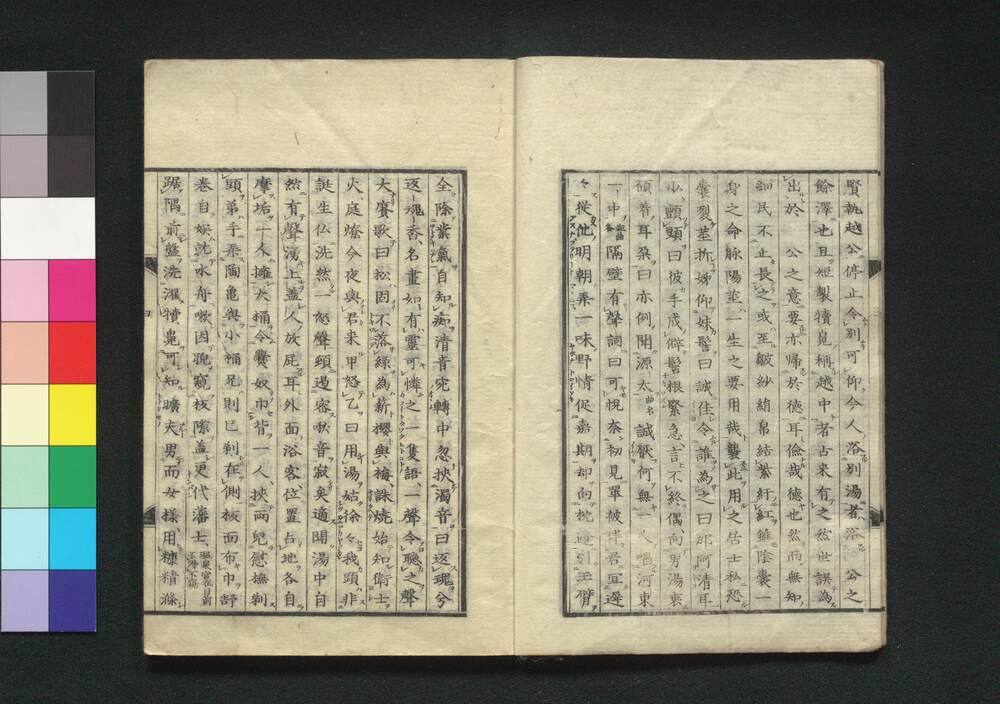 賢執越公停止令別可仰今人浴別湯者浴 公之
餘澤也且短製犢鼻稱越中者古来有之然世誤為
出於 公之意要亦帰於徳耳倹哉徳也然而無知
細民不止長之或至皺紗綃帛結紫紆紅雖陰嚢一
身之命脉陽茎一生之要用哉襲此用之居士私恐
嚢裂茎折娣仰妹髻曰誠佳令誰為之曰那阿清耳
少顫頭曰彼手成僻髻根緊急言不終偶向男湯裏
傾着耳朶曰亦例開源太曲名誠厭何無一人唱河東
一中並曲名隔壁有聲詞曰可悦奈初見單被伴君宜遅
々従他明朝弄一味野情促嘉期却向枕邊引玉臂
全除紫氣自知痴清音宛轉中忽挾濁音曰返瑰兮
返魂香名畫如有靈可憐之一隻語一聲令聽之聲
大賡歌曰松固不落縁為薪櫻與梅誅焼始知衛士
火庭燎今夜與君来甲怒乙曰用湯姑徐々我頭非
誕生仏洗然一怒聲頸過審秋音寂矣適聞湯中自
然有聲湧上蓋人放屁耳外面浴客位置占地各自
摩垢一人擁大桶令爨奴巾背一人挾両兒慰撫剃
頭弟手弄陶亀與小桶兄則已剃在側板面布巾舒
巻自娯就水舟嗽因睨窺板隙蓋更代藩士
踞隅前盤洗濯犢鼻可知曠夫男而女様用糠精滌